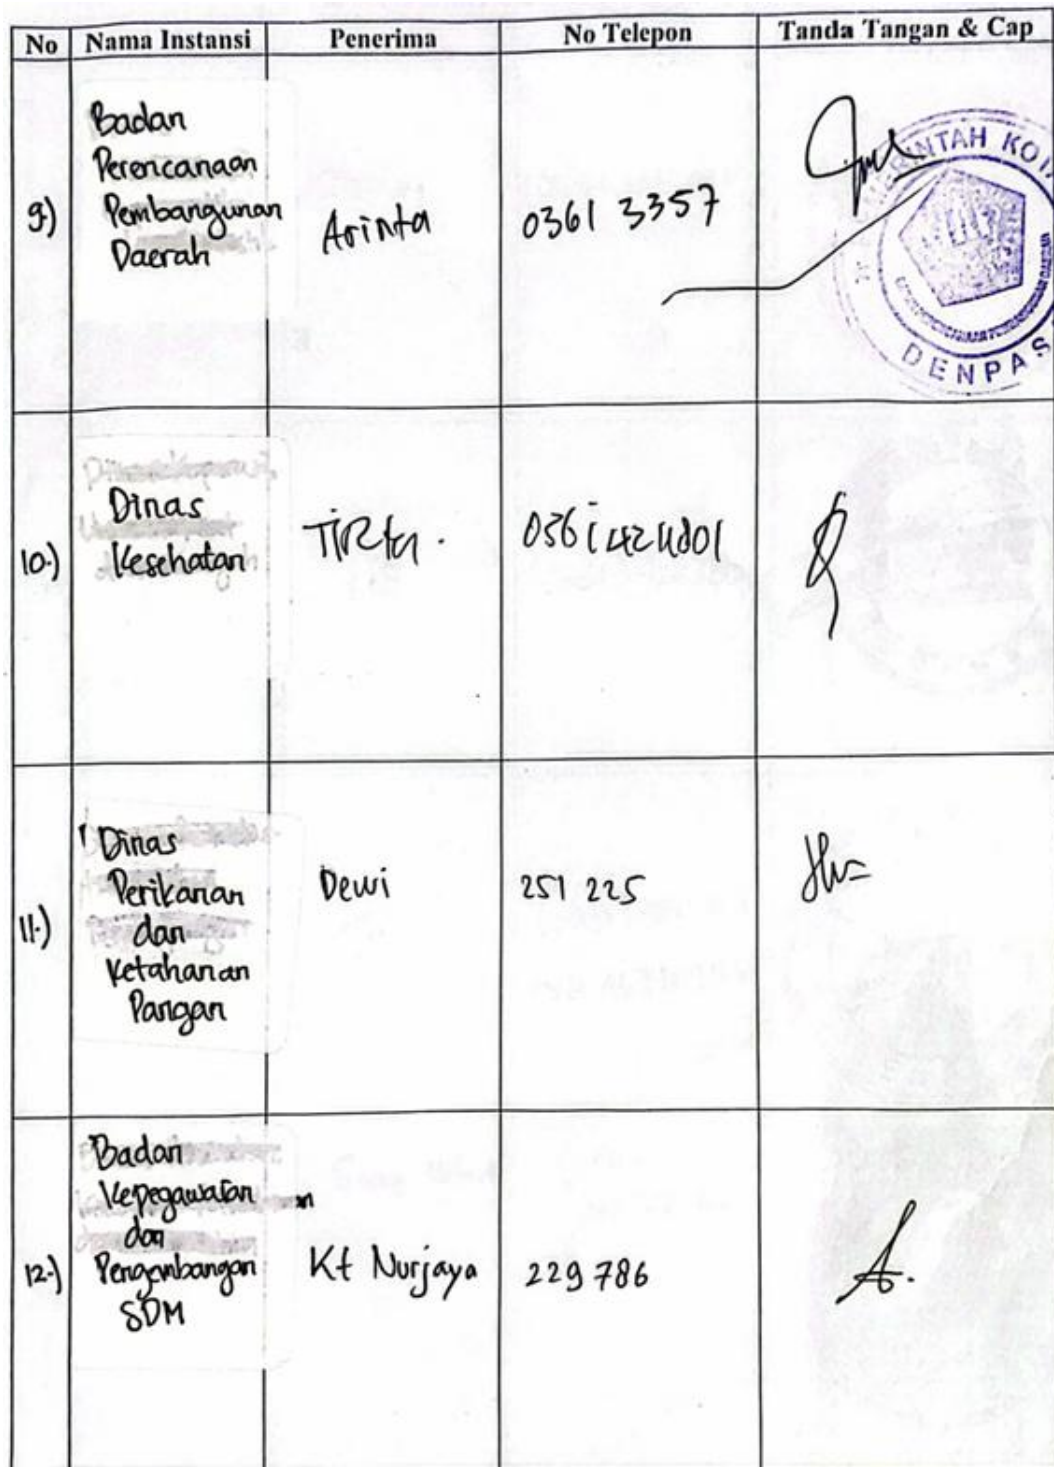 No Nama Instansi Penerima No Telepon Tanda Tangan & Cap
9.) Badan
Perencanaan
Pembangunan
Daerah
Arinta
0361 3357
PEMERINTAH KOTA
DENPAS
10.) Dinas
Kesehatan
Tirta.
0361424801
11.) Dinas
Perikanan
dan
Ketahanan
Pangan
Dewi
251 225
12.) Badan
Kepegawaian
dan
Pengembangan
SDM
Kt Nurjaya
229 786